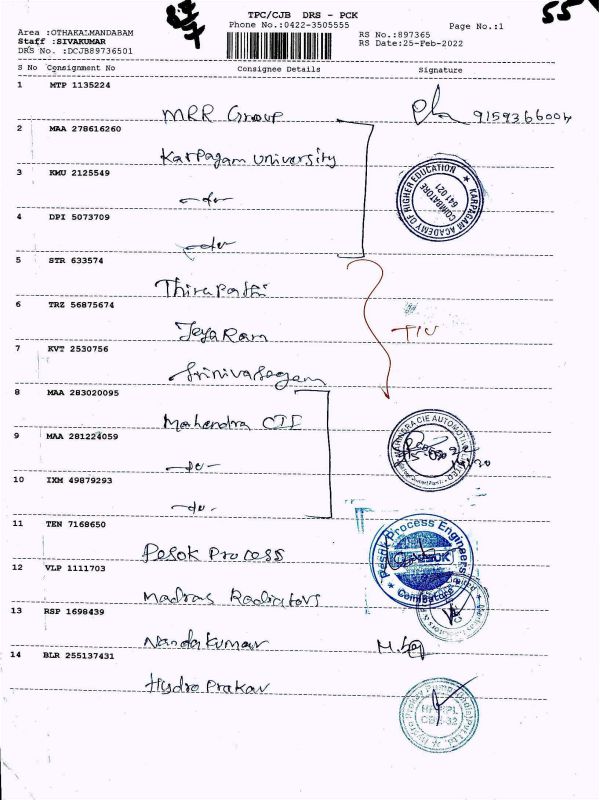 55
TPC/CJB DRS - PCK
Phone No.:0422-3505555
Page No.:1
Area :OTHAKALMANDABAM
Staff :SIVAKUMAR
DRS No. :DCJB89736501
RS No.:897365
RS Date:25-Feb-2022
S No Consignment No Consignee Details Signature
1 MTP 1135224
MRR Group 9159366004
2 MAA 278616260
Karpagam University
KARPAGAM ACADEMY OF HIGHER EDUCATION
COIMBATORE
641 021
3 KMU 2125549
-do-
4 DPI 5073709
-do-
5 STR 633574
Thirupathi
6 TRZ 56875674
JeyaRam
7 KVT 2530756
Srinivasagam
8 MAA 283020095
Mahendra CIE
9 MAA 281224059
-do-
10 IXM 49879293
-do-
11 TEN 7168650
Pesok Process
Pesok Process Engineers
Coimbatore
12 VLP 1111703
Madras Radiators
13 RSP 1698439
Nandakumar
14 BLR 255137431
Hydro Prakav